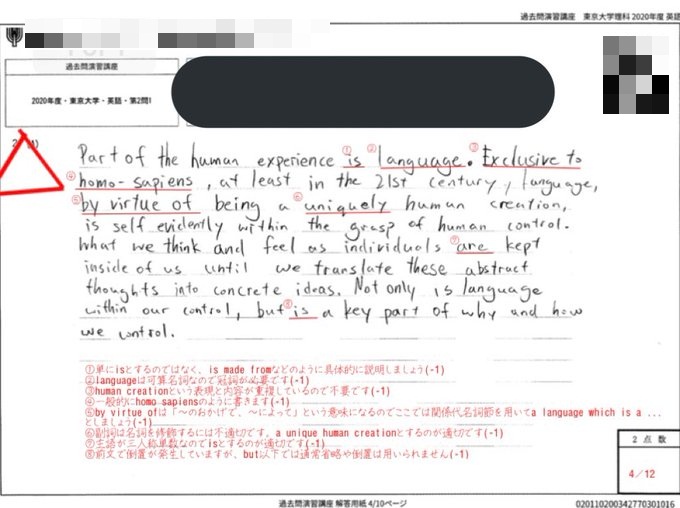 過去問演習講座 東京大学理科 2020年度 英語
過去問演習講座
2020年度・東京大学・英語・第2問I
Part of the human experience ①is ②language. ③Exclusive to
④homo-sapiens, at least in the 21st century, language,
⑤by virtue of being a ⑥uniquely human creation,
is self evidently within the grasp of human control.
What we think and feel as individuals ⑦are kept
inside of us until we translate these abstract
thoughts into concrete ideas. Not only is language
within our control, but ⑧is a key part of why and how
we control.
①単にisとするのではなく、is made fromなどのように具体的に説明しましょう(-1)
②languageは可算名詞なので冠詞が必要です(-1)
③human creationという表現と内容が重複しているので不要です(-1)
④一般的にhomo sapiensのように書きます(-1)
⑤by virtue ofは「~のおかげで、~によって」という意味になるのでここでは関係代名詞節を用いてa language which is a ...
としましょう(-1)
⑥副詞は名詞を修飾するには不適切です、a unique human creationとするのが適切です(-1)
⑦主語が三人称単数なのでisとするのが適切です(-1)
⑧前文で倒置が発生していますが、but以下では通常省略や倒置は用いられません(-1)
2 点 数
4/12
過去問演習講座 解答用紙 4/10ページ
020110200342770301016